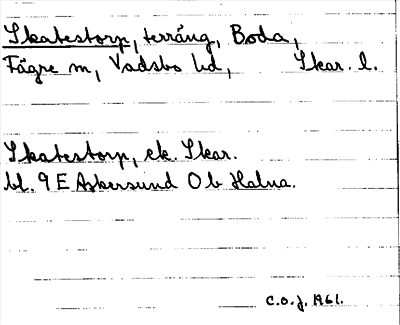 Skatestorp, terräng, Boda,
Fägre sn, Vadsbo hd, Skar. l.
Skatestorp, ek. Skar.
bl. 9 E Askersund O b Halna.
C.O.J. 1961.